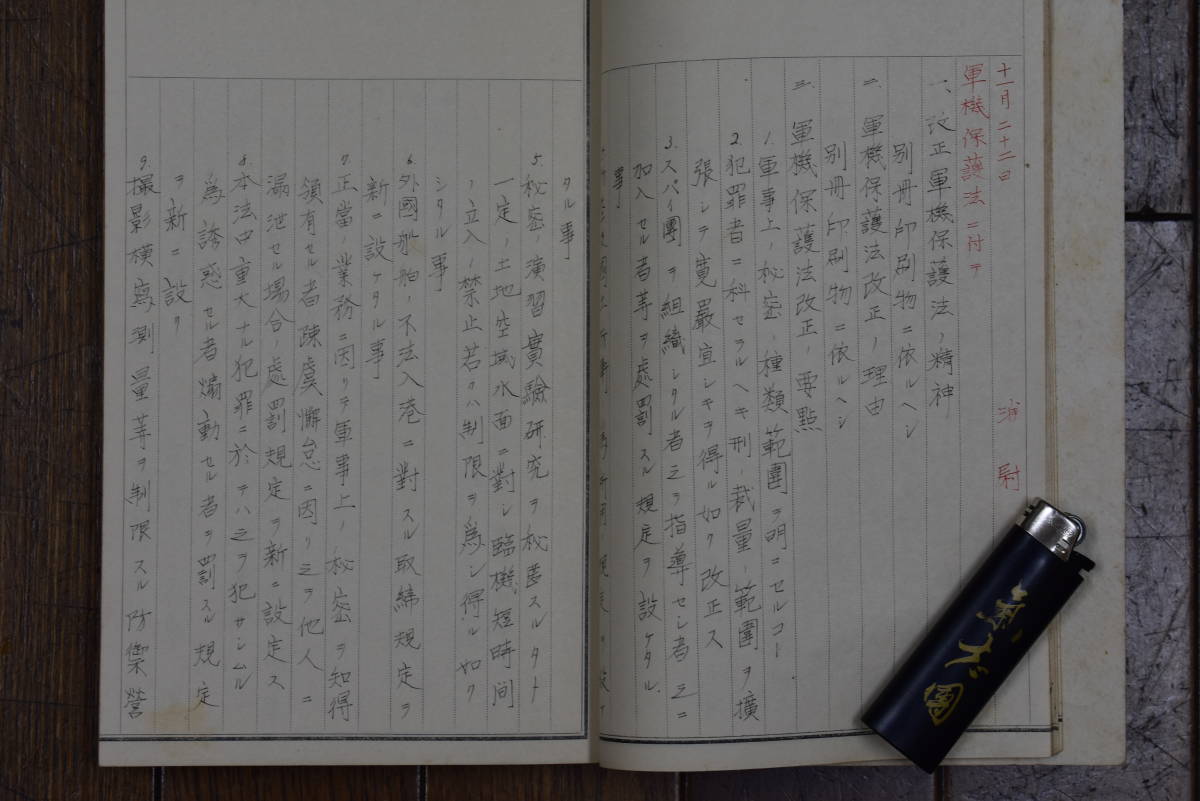 十一月二十二日
尉
軍機保護法ニ付テ
一、改正軍機保護法ノ精神
別冊印刷物ニ依ルヘシ
二、軍機保護法改正ノ理由
別冊印刷物ニ依ルヘシ
三、軍機保護法改正ノ要點
1.軍事上ノ秘密ノ種類範圍ヲ明ニセルコー
2.犯罪者ニ科セラルヘキ刑ノ裁量ノ範圍ヲ擴
張シテ寛嚴宜シキヲ得ル如ク改正ス
3.スパイ團ヲ組織シタル者之ヲ指導セシ者之ニ
加入セル者等ヲ處罰スル規定ヲ設ケタル
事
タル事
5.秘密ノ演習實驗研究ヲ秘匿スルタト
一定ノ土地空域水面ニ對シ臨機短時間
ノ立入ノ禁止若クハ制限ヲ爲シ得ル如ク
シタル事
6.外國船舶ノ不法入港ニ對スル取締規定ヲ
新ニ設ケタル事
7.正當ノ業務ニ因リテ軍事上ノ秘密ヲ知得
領有セル者疎虞懈怠ニ因リ之ヲ他人ニ
漏泄セル場合ノ處罰規定ヲ新ニ設定ス
8.本法中重大ナル犯罪ニ於テハ之ヲ犯サシムル
爲誘惑セル者煽動セル者ヲ罰スル規定
ヲ新ニ設ク
9.撮影模寫測量等ヲ制限スル防禦營